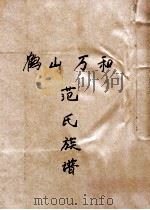 鹤山万和
范氏族谱